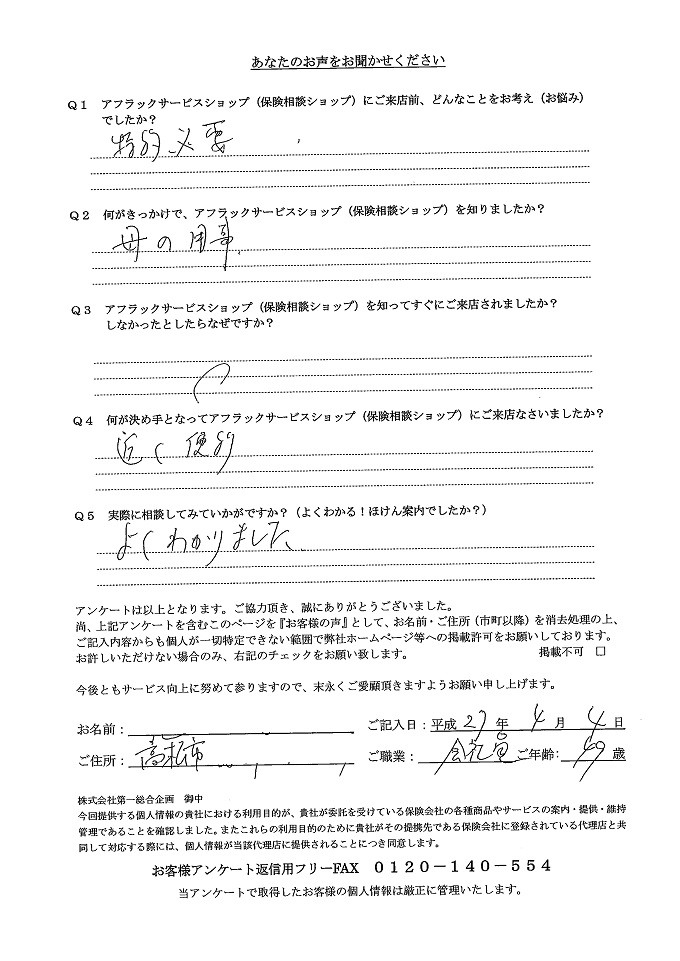 あなたのお声をお聞かせください
Q1 アフラックサービスショップ（保険相談ショップ）にご来店前、どんなことをお考え（お悩み）
でしたか？
特約必要
Q2 何がきっかけで、アフラックサービスショップ（保険相談ショップ）を知りましたか？
母の用事
Q3 アフラックサービスショップ（保険相談ショップ）を知ってすぐにご来店されましたか？
しなかったとしたらなぜですか？
Q4 何が決め手となってアフラックサービスショップ（保険相談ショップ）にご来店なさいましたか？
近く便利
Q5 実際に相談してみていかがですか？（よくわかる！ほけん案内でしたか？）
よくわかりました
アンケートは以上となります。ご協力頂き、誠にありがとうございました。
尚、上記アンケートを含むこのページを『お客様の声』として、お名前・ご住所（市町以降）を消去処理の上、
ご記入内容からも個人が一切特定できない範囲で弊社ホームページ等への掲載許可をお願いしております。
お許しいただけない場合のみ、右記のチェックをお願い致します。 掲載不可 □
今後ともサービス向上に努めて参りますので、末永くご愛顧頂きますようお願い申し上げます。
お名前： ご記入日：平成 27 年 4 月 4 日
ご住所： 高松市 ご職業： 会社員 ご年齢： 歳
株式会社第一総合企画 御中
今回提供する個人情報の貴社における利用目的が、貴社が委託を受けている保険会社の各種商品やサービスの案内・提供・維持
管理であることを確認しました。またこれらの利用目的のために貴社がその提携先である保険会社に登録されている代理店と共
同して対応する際には、個人情報が当該代理店に提供されることにつき同意します。
お客様アンケート返信用フリーFAX 0120－140－554
当アンケートで取得したお客様の個人情報は厳正に管理いたします。